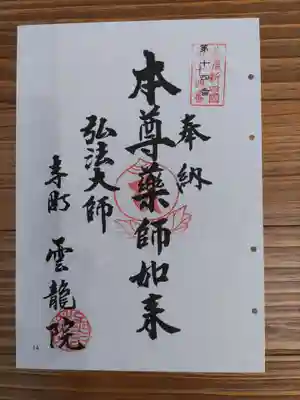 奉納
本尊藥師如来
弘法大師
寺町 雲龍院
第十四番
14